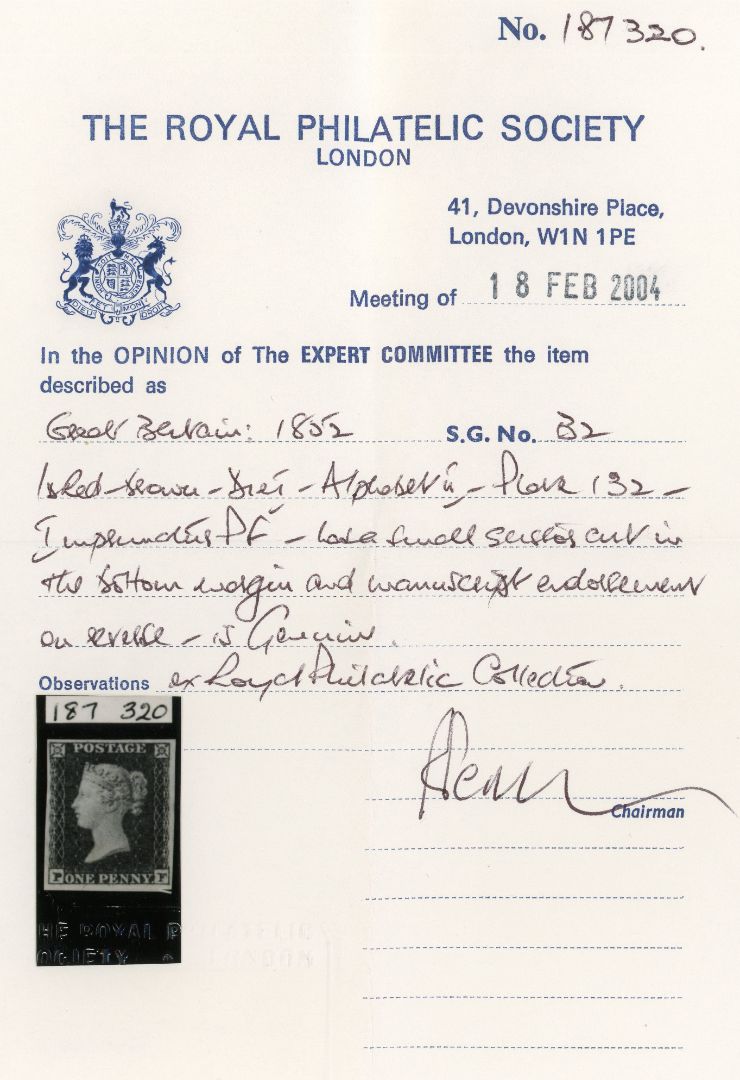 No. 187320.
THE ROYAL PHILATELIC SOCIETY
LONDON
41, Devonshire Place,
London, W1N 1PE
Meeting of 18 FEB 2004
In the OPINION of The EXPERT COMMITTEE the item
described as
Great Britain: 1852 S.G. No. B2
1d Red-brown - Die I - Alphabet II - Plate 132 -
Imprimatur PF - has a small scissor cut in
the bottom margin and manuscript endorsement
on reverse - is Genuine.
Observations ex Royal Philatelic Collection.
187 320
POSTAGE
P ONE PENNY F
Chairman
THE ROYAL PHILATELIC
SOCIETY LONDON